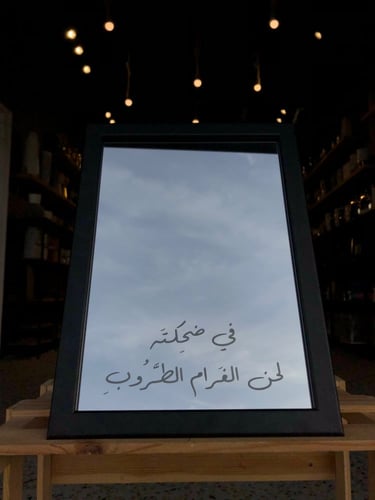 في ضحِكتَه
لحن الغَرام الطَّرُوبِ